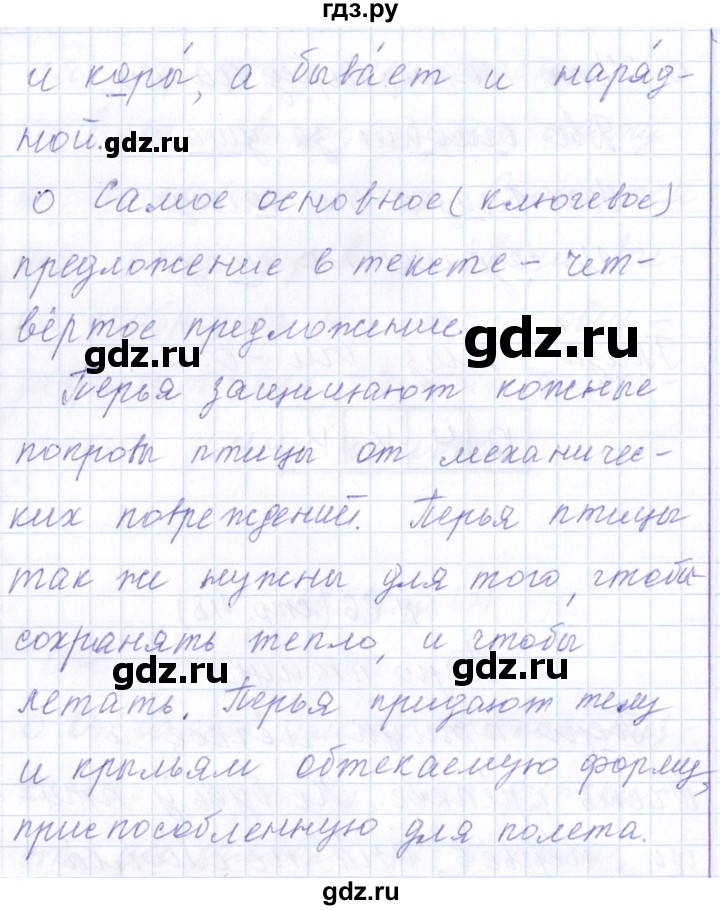 гдз.ру
и коры́, а быва́ет и наря́д-
ной.
gdz.ru
о Самое основное (ключевое)
предложение в тексте - чет-
вёртое предложение.
gdz.ru
gdz.ru
Перья защищают кожные
покровы птицы от механичес-
ких повреждений. Перья птицы
gdz.ru
так же нужны для того, чтобы
сохранять тепло, и чтобы
gdz.ru
gdz.ru
летать. Перья придают телу
и крыльям обтекаемую форму,
приспособленную для полета.
gdz.ru
gdz.ru